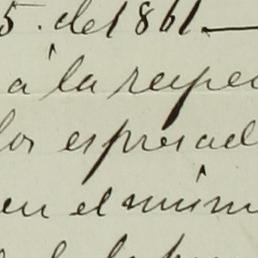 5. de 1861—
á la respec
los espresad
en el mism